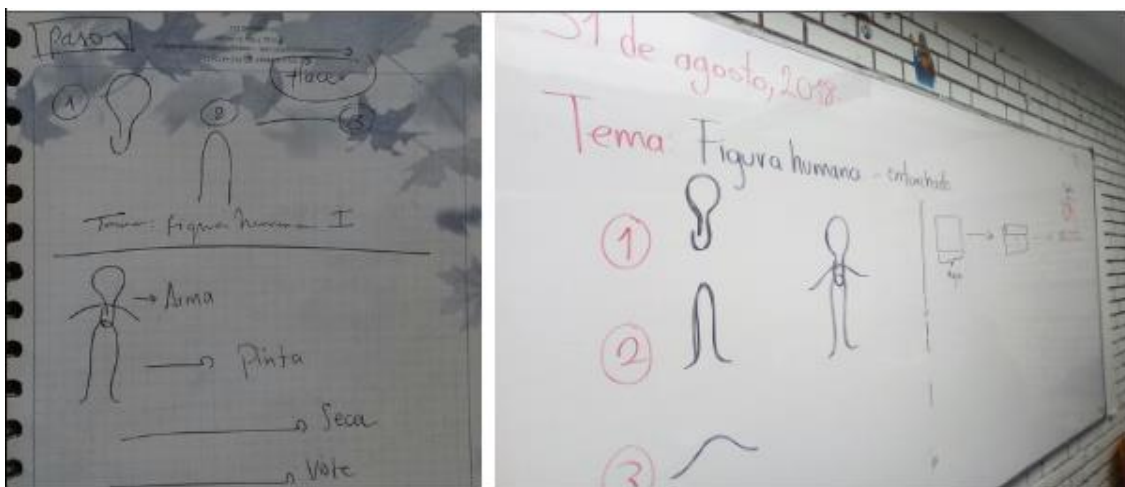 Pasos
Hacer
1
2
3
Tema: Figura humana I
Arma
Pinta
Seca
Vote
31 de agosto, 2018.
Tema Figura humana - entorchado
1
2
3